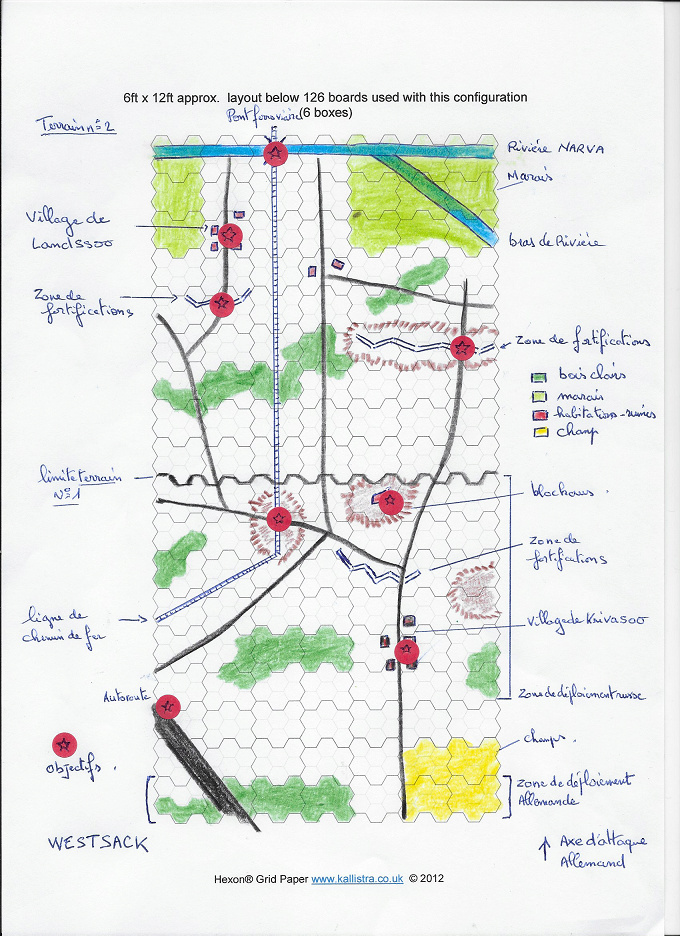 6ft x 12ft approx. layout below 126 boards used with this configuration
(6 boxes)
Pont ferroviaire
Terrain n° 2
Rivière NARVA
Marais
Village de
Landssoo
bras de Rivière
Zone de
fortifications
Zone de fortifications
bois clairs
marais
habitations-ruines
champ
limite terrain
N° 1
blockaus.
Zone de
fortifications
ligne de
chemin de fer
Village de Krivasoo
Autoroute
Zone de déploiement russe
Objectifs.
champs.
Zone de déploiement
Allemande
WESTSACK
Axe d'attaque
Allemand
Hexon® Grid Paper www.kallistra.co.uk © 2012